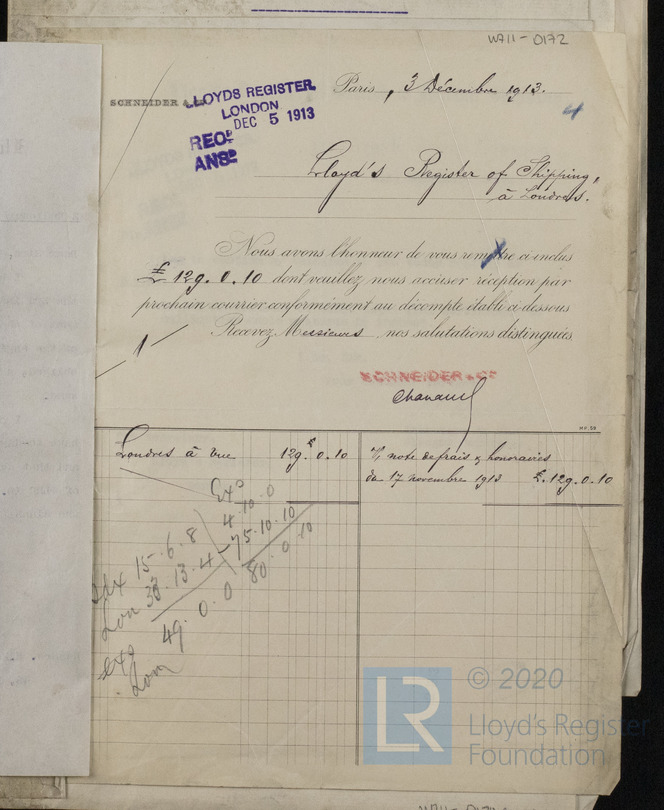 W711-0172
SCHNEIDER & Cie
Paris, 3 Décembre 1913.
4
LLOYDS REGISTER
LONDON
DEC 5 1913
RECD
ANSD
Lloyd's Register of Shipping,
à Londres.
Nous avons l'honneur de vous remettre ci-inclus
£ 129. 0. 10 dont veuillez nous accuser réception par
prochain courrier conformément au décompte établi ci-dessous
Recevez Messieurs nos salutations distinguées
1
SCHNEIDER & Cie
MP. 58
Londres à vue 129. £ 0. 10
V/ note de frais & honoraires
du 17 novembre 1913 £. 129. 0. 10
4. 10. 0
75. 10. 10
80. 0. 10
15. 6. 8
Lon 33. 13. 4
49. 0. 0
Lon
LR
© 2020
Lloyd's Register
Foundation